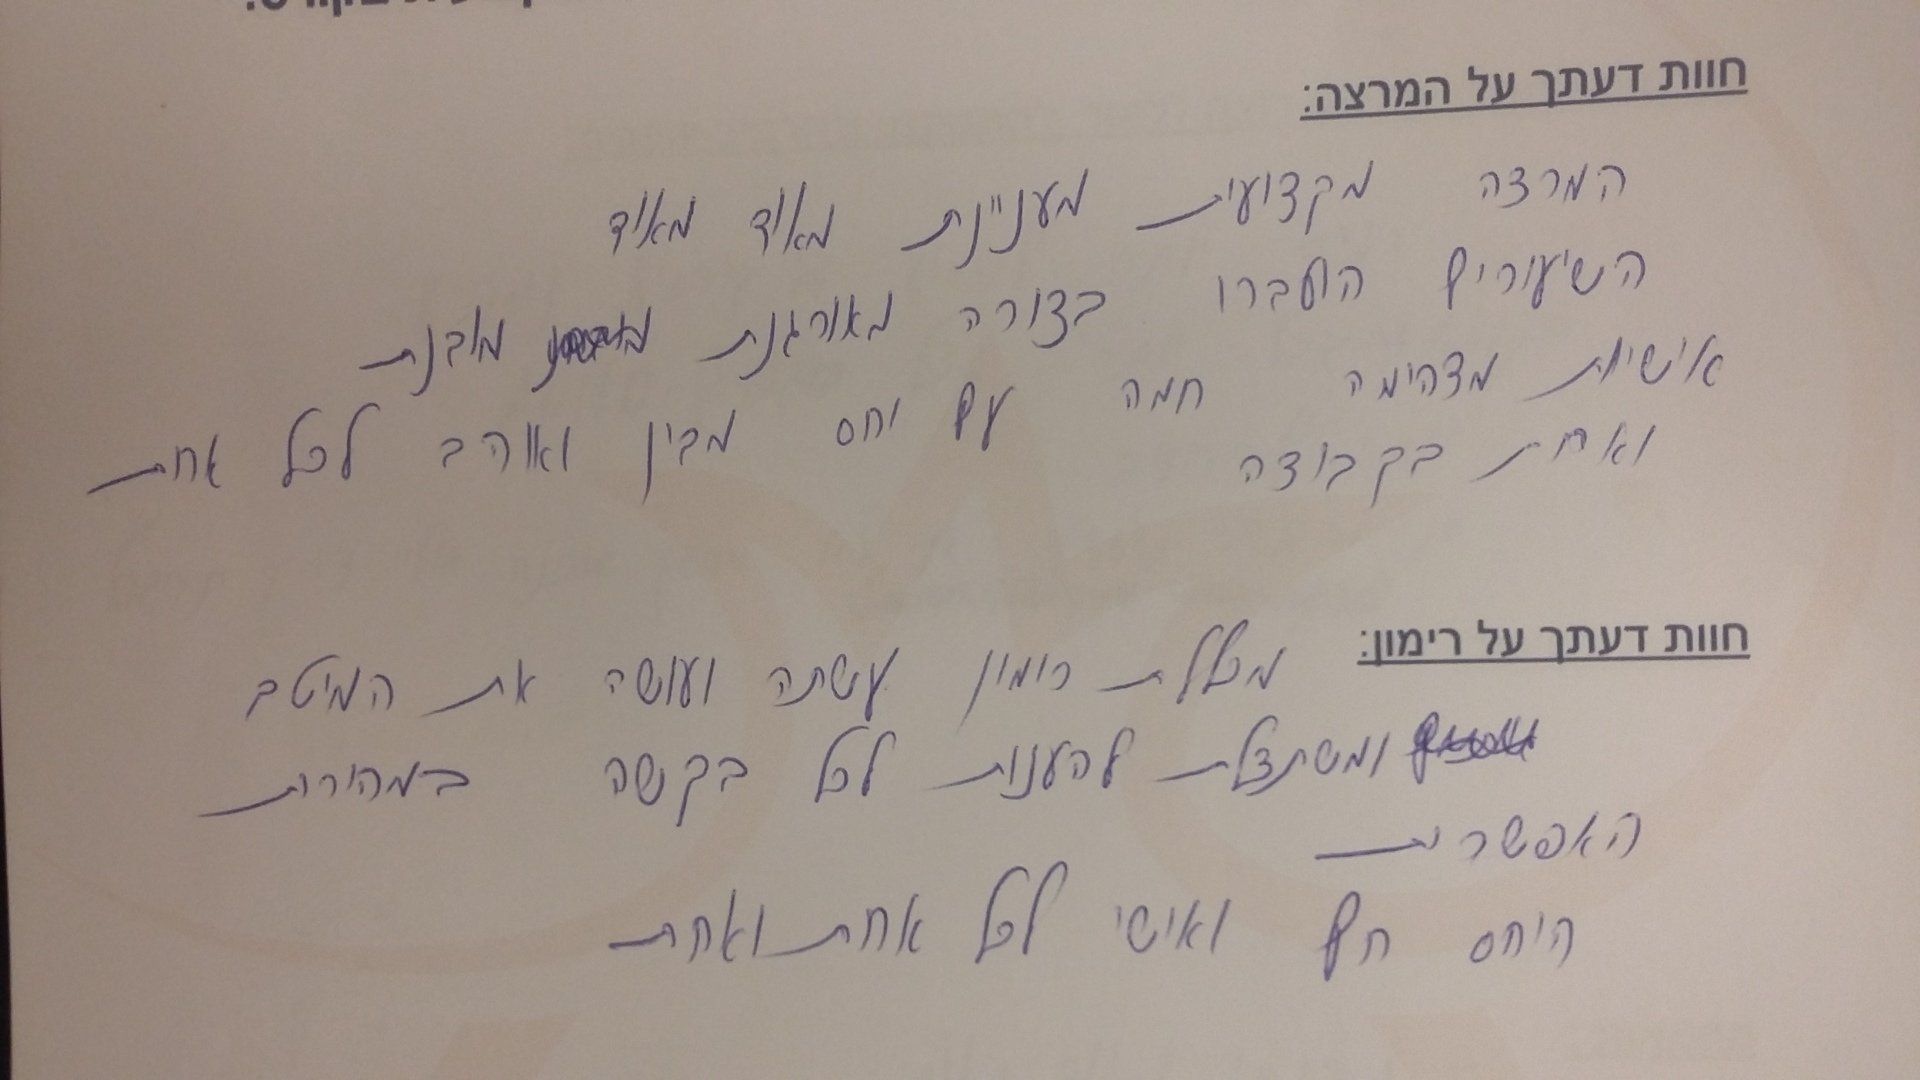 חוות דעתך על המרצה:
המרצה מקצועית מעניינת מאוד מאוד
השיעורים הועברו בצורה מאורגנת מובנת
אישיות מדהימה חמה עם יחס מבין ואוהב לכל אחת
ואחת בקבוצה
חוות דעתך על רימון:
מכללת רימון עשתה ועושה את המיטב
ומשתדלת להענות לכל בקשה במהירות
האפשרית
היחס חם ואישי לכל אחת ואחת